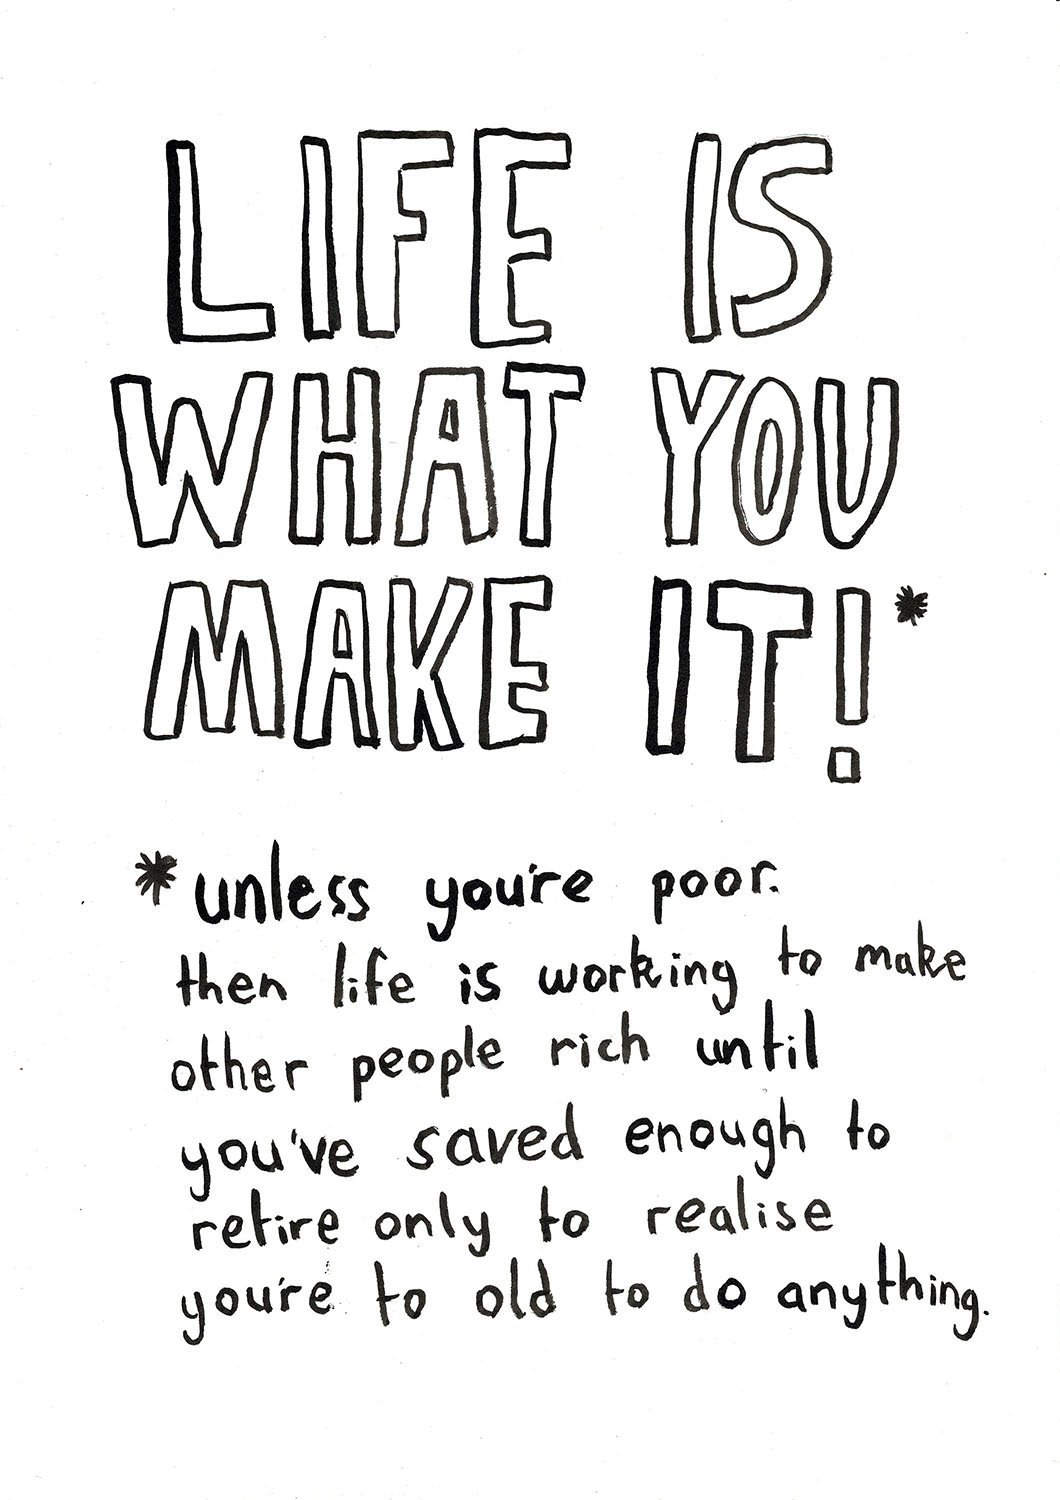 LIFE IS
WHAT YOU
MAKE IT!*
*unless you're poor.
then life is working to make
other people rich until
you've saved enough to
retire only to realise
you're to old to do anything.